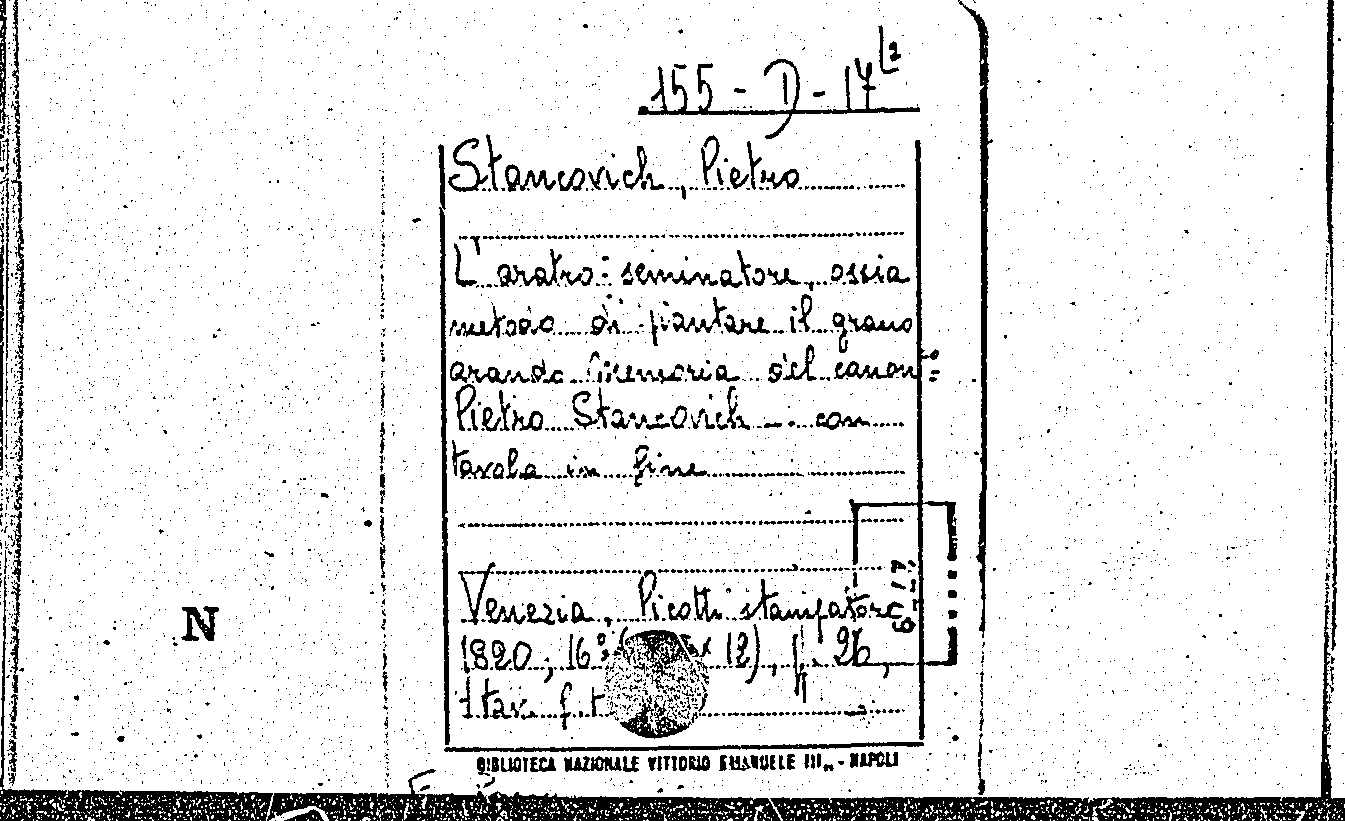 155 - D - 17 L2
Stancovich, Pietro
L'aratro-seminatore, ossia
metodo di piantare il grano
arando. Memoria del canon:co
Pietro Stancovich ... con
tavola in fine
Venezia, Picotti stampatore
1820, 16° ( x 12), p. 26,
1 tav. f. t
N
BIBLIOTECA NAZIONALE VITTORIO EMANUELE III„ - NAPOLI